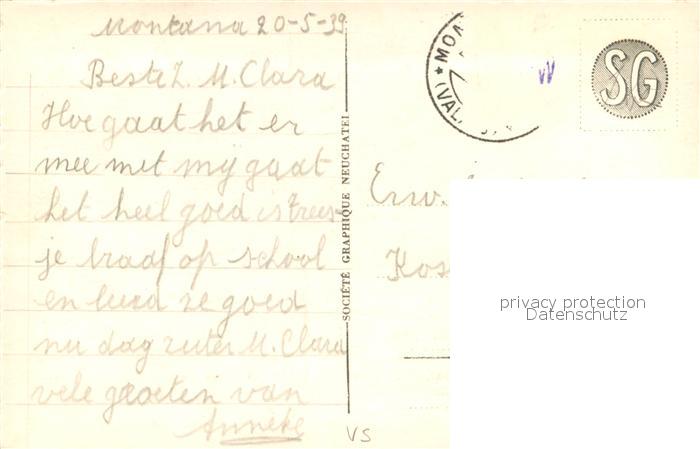 Montana 20-5-39
Beste Z. M. Clara
Hoe gaat het er
mee met mij gaat
het heel goed is Trees-
je braaf op school
en leerd ze goed
nu dag zuter M. Clara
vele groeten van
Anneke
SOCIÉTÉ GRAPHIQUE NEUCHATEL
VS
(VAL
SG
Erw.
Kos
privacy protection
Datenschutz